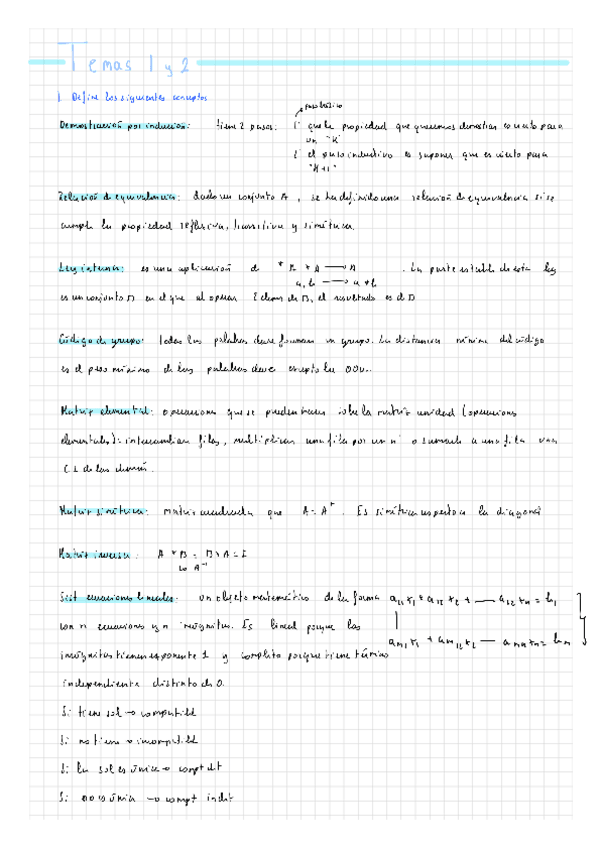 Temas 1 y 2
1. Define los siguientes conceptos
paso básico
Demostración por inducción: tiene 2 pasos: 1º que la propiedad que queremos demostrar es cierta para
un "K"
2º el paso inductivo es suponer que es cierto para
"K+1"
Relación de equivalencia: dado un conjunto A, se ha definido una relación de equivalencia si se
cumple la propiedad reflexiva, transitiva y simétrica.
Ley interna: es una aplicación de * A x A → A . La parte estable de esta ley
a, b → a * b
es un conjunto B en el que al operar 2 elem de B, el resultado es de B
Código de grupo: todas las palabras clave forman un grupo. La distancia mínima del código
es el peso mínimo de las palabras clave excepto la 000...
Matriz elemental: operaciones que se pueden hacer sobre la matriz unidad (operaciones
elementales): intercambiar filas, multiplicar una fila por un nº o sumarle a una fila una
C.L de las demás.
Matriz simétrica: matriz cuadrada que A = Aᵗ. Es simétrica respecto a la diagonal
Matriz inversa: A * B = B * A = I
↳ A⁻¹
Sist ecuaciones lineales: un objeto matemático de la forma a₁₁x₁ + a₁₂x₂ + — a₁₂xₙ = b₁
con n ecuaciones y n incógnitas. Es lineal porque las
aₘ₁x₁ + aₘ₂x₂ — aₘₙxₙ = bₘ
incógnitas tienen exponente 1 y completo porque tiene término
independiente distinto de 0.
Si tiene sol → compatible
Si no tiene → incompatible
Si la sol es única → compt dt
Si no es única → compt indt